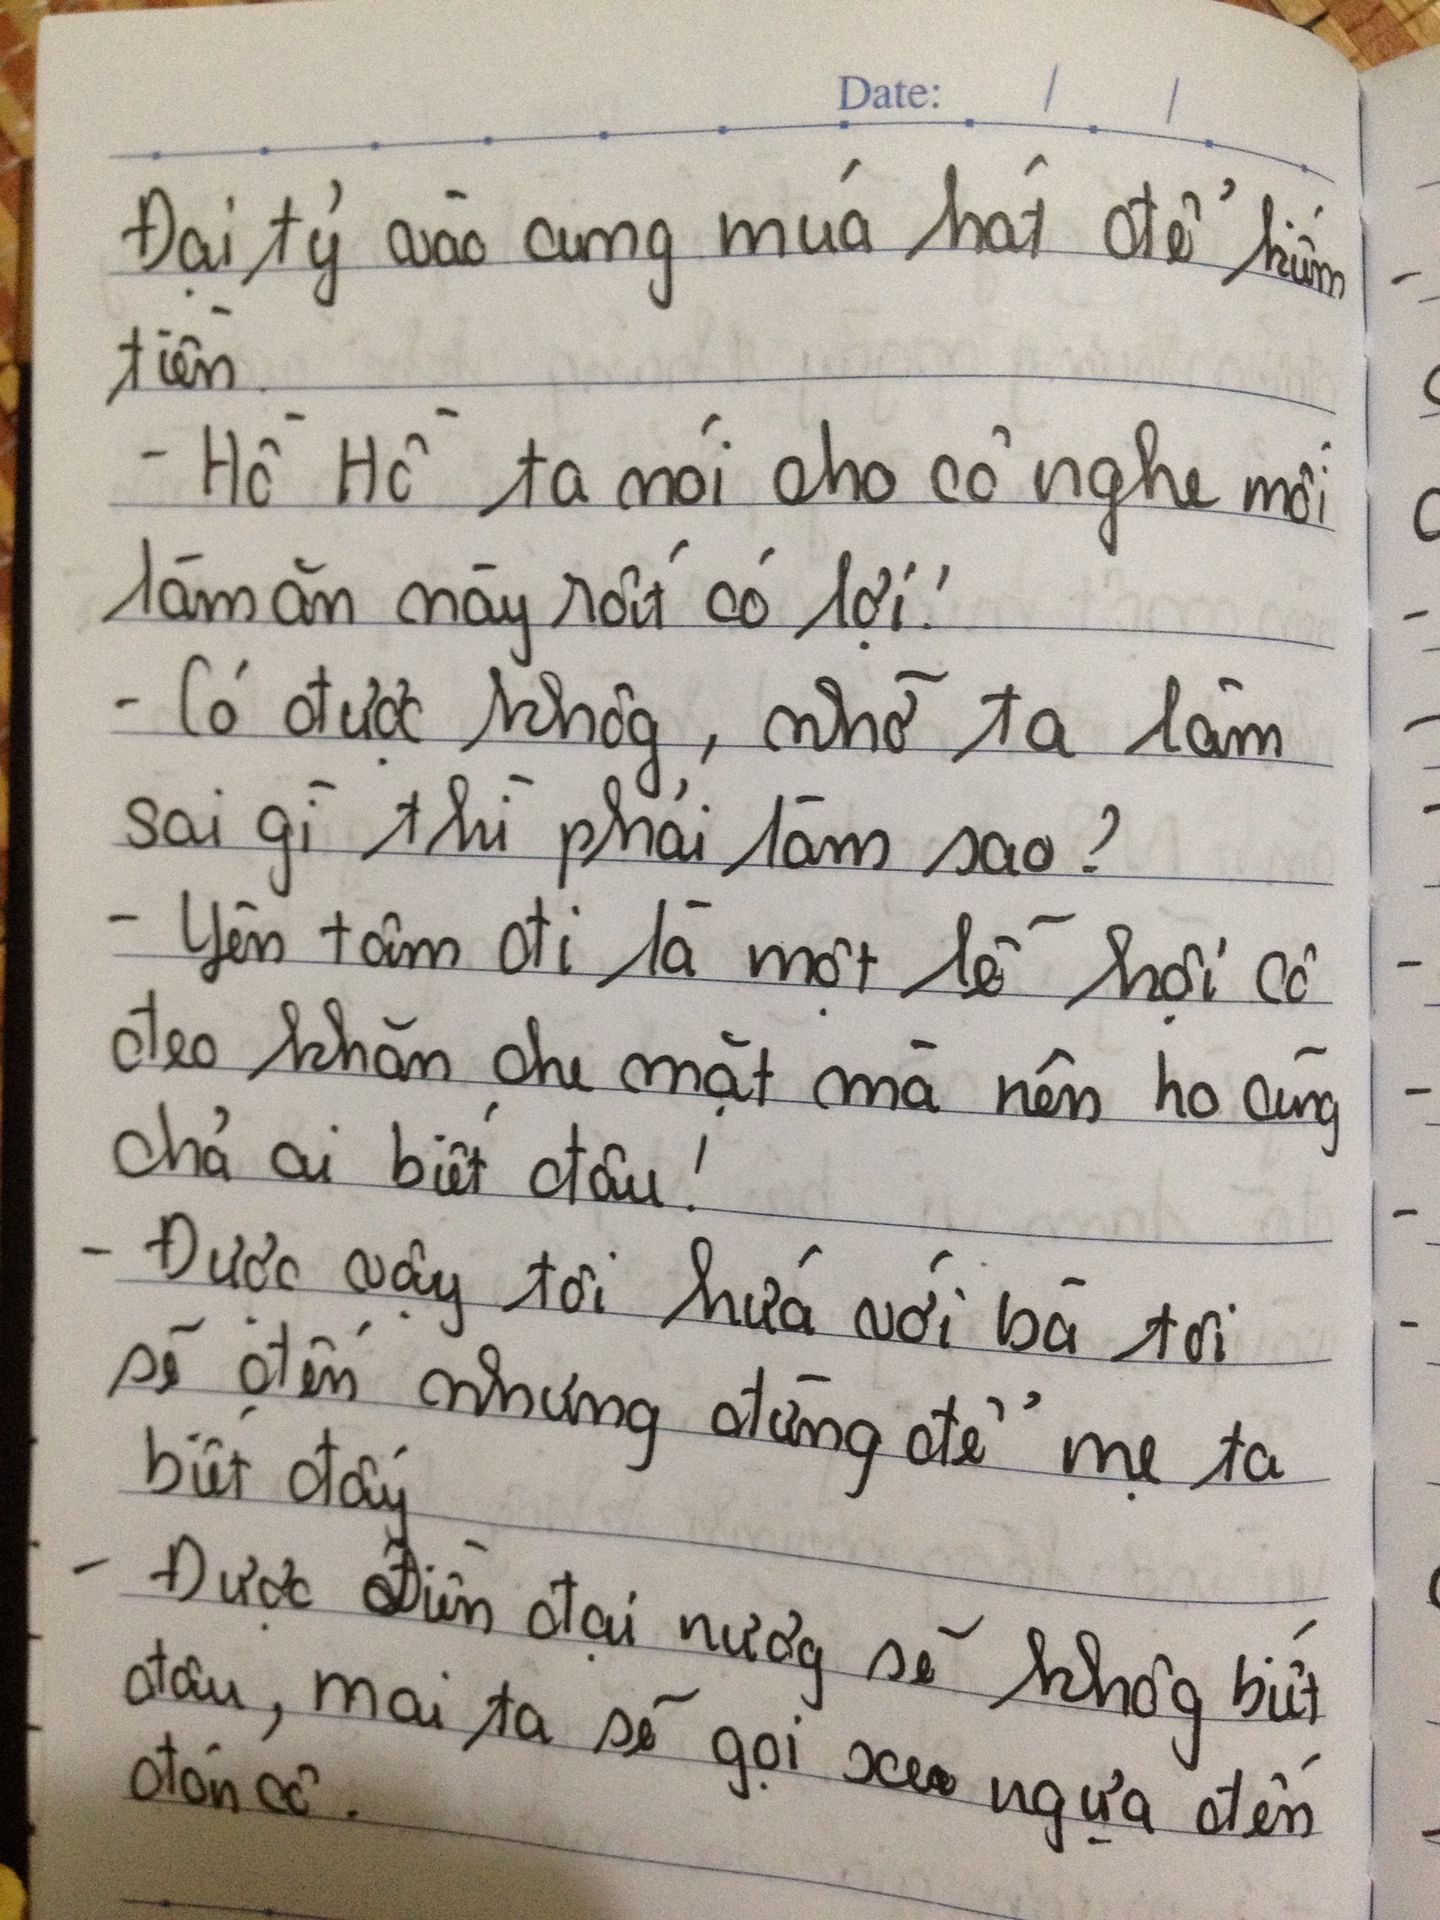 Date: / /
Đại tỷ vào cung múa hát để kiếm
tiền.
- Hồ Hồ ta nói cho cô nghe mối
làm ăn này rất có lợi!
- Có được khôg, nhỡ ta làm
sai gì thì phải làm sao?
- Yên tâm đi là một lễ hội cô
đeo khăn che mặt mà nên họ cũng
chả ai biết đâu!
- Được vậy tôi hứa với bà tôi
sẽ đến nhưng đừng để mẹ ta
biết đấy
- Được Điền đại nươg sẽ khôg biết
đâu, mai ta sẽ gọi xe ngựa đến
đón cô.